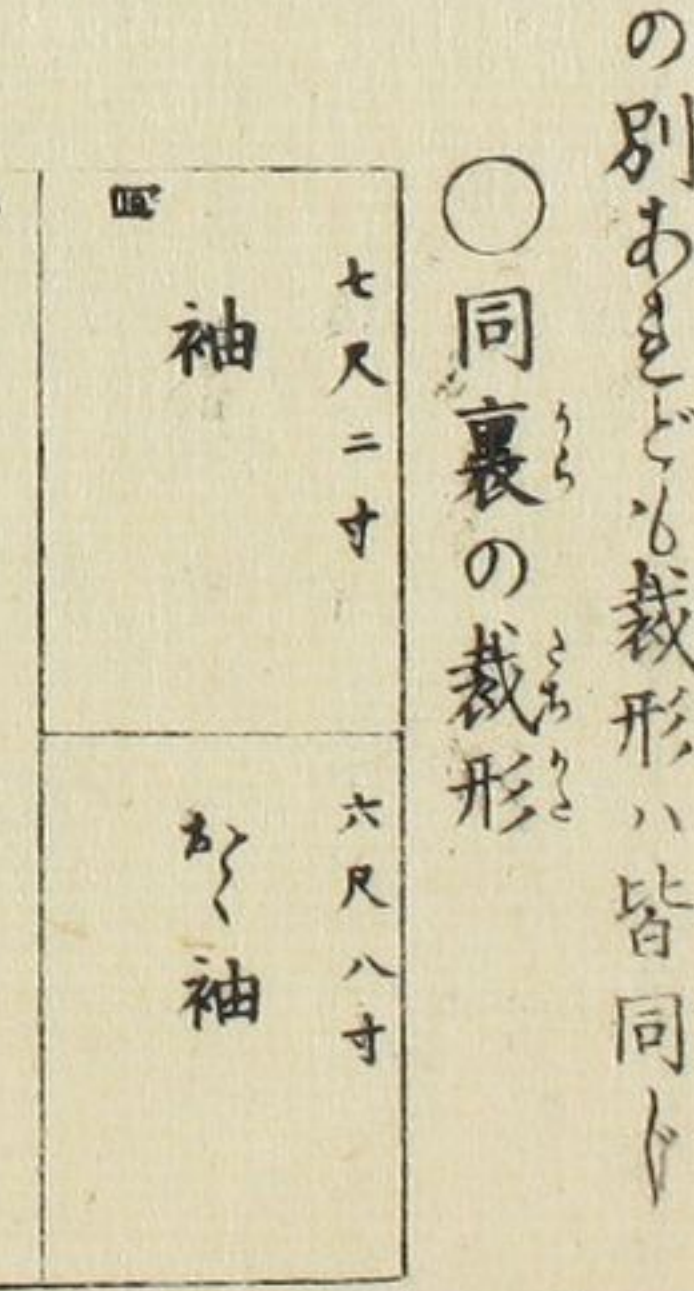 の別あれども裁形ハ皆同じ
○同裏の裁形
うら たちかた
七尺二寸
袖
六尺八寸
おく袖